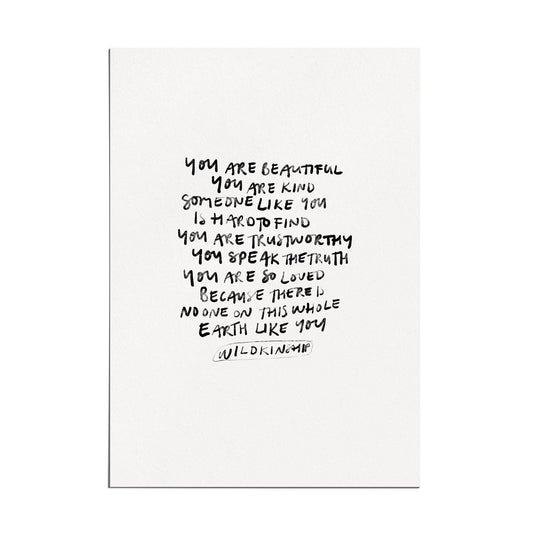 YOU ARE BEAUTIFUL
YOU ARE KIND
SOMEONE LIKE YOU
IS HARD TO FIND
YOU ARE TRUSTWORTHY
YOU SPEAK THE TRUTH
YOU ARE SO LOVED
BECAUSE THERE IS
NO ONE ON THIS WHOLE
EARTH LIKE YOU
WILDKINSHIP